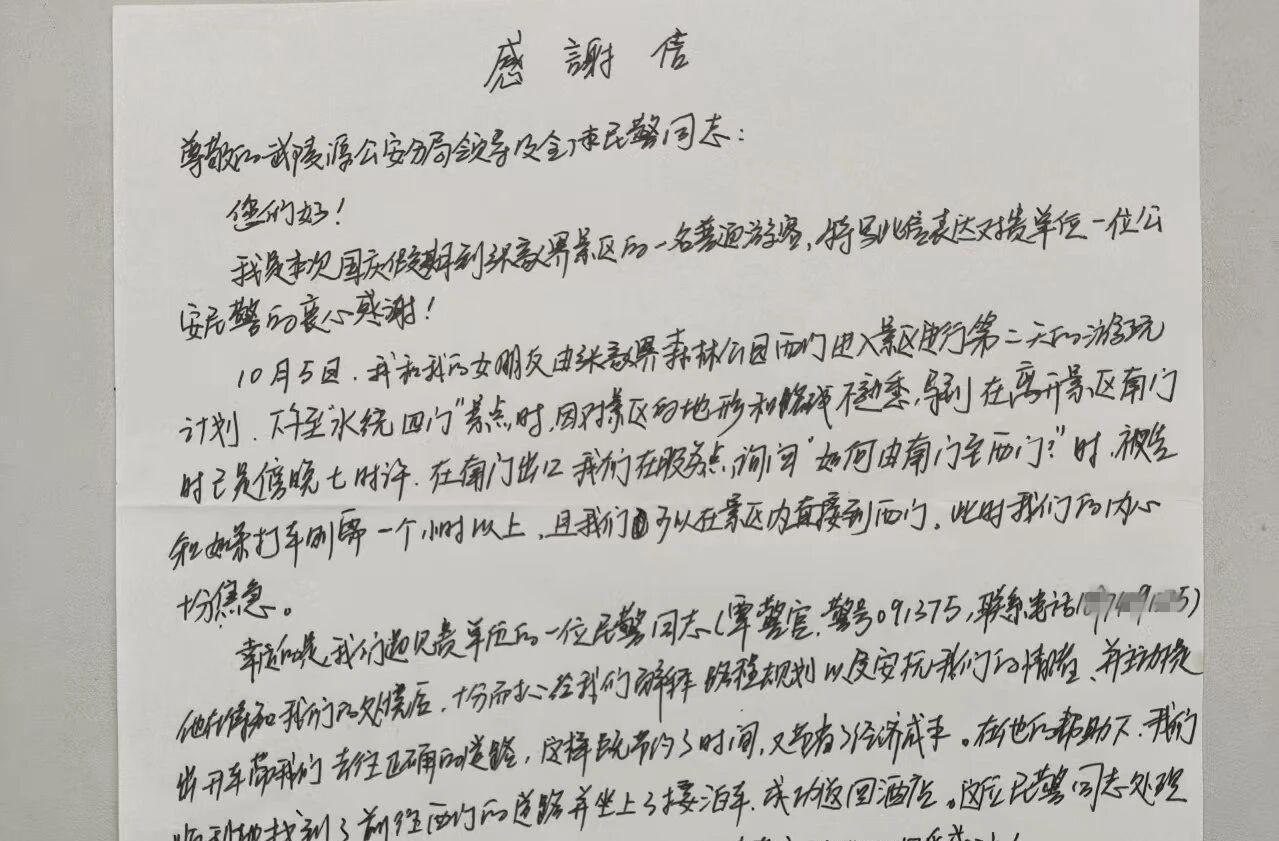 感謝信
尊敬的武陵源公安分局领导及全体民警同志：
您们好！
我是本次国庆假期到张家界景区的一名普通游客，特写此信表达对贵单位一位公
安民警的衷心感谢！
10月5日，我和我的女朋友由张家界森林公园西门进入景区进行第二天的游玩
计划，下午至“水绕四门”景点时，因对景区的地形和路线不熟悉，导致在离开景区南门
时已是傍晚七时许，在南门出口我们在服务点询问“如何由南门至西门？”时，被告
知如果打车则需一个小时以上，且我们可以在景区内直接到西门，此时我们的内心
十分焦急。
幸运的是，我们遇见贵单位的一位民警同志（覃警官，警号091375，联系电话 5）
他在得知我们的处境后，十分耐心给我们解释路程规划以及安抚我们的情绪，并主动提
出开车带我们去往正确的道路，这样既节约了时间，又节省了经济成本。在他的帮助下，我们
顺利地找到了前往西门的道路并坐上了接泊车，成功返回酒店。这位民警同志处理